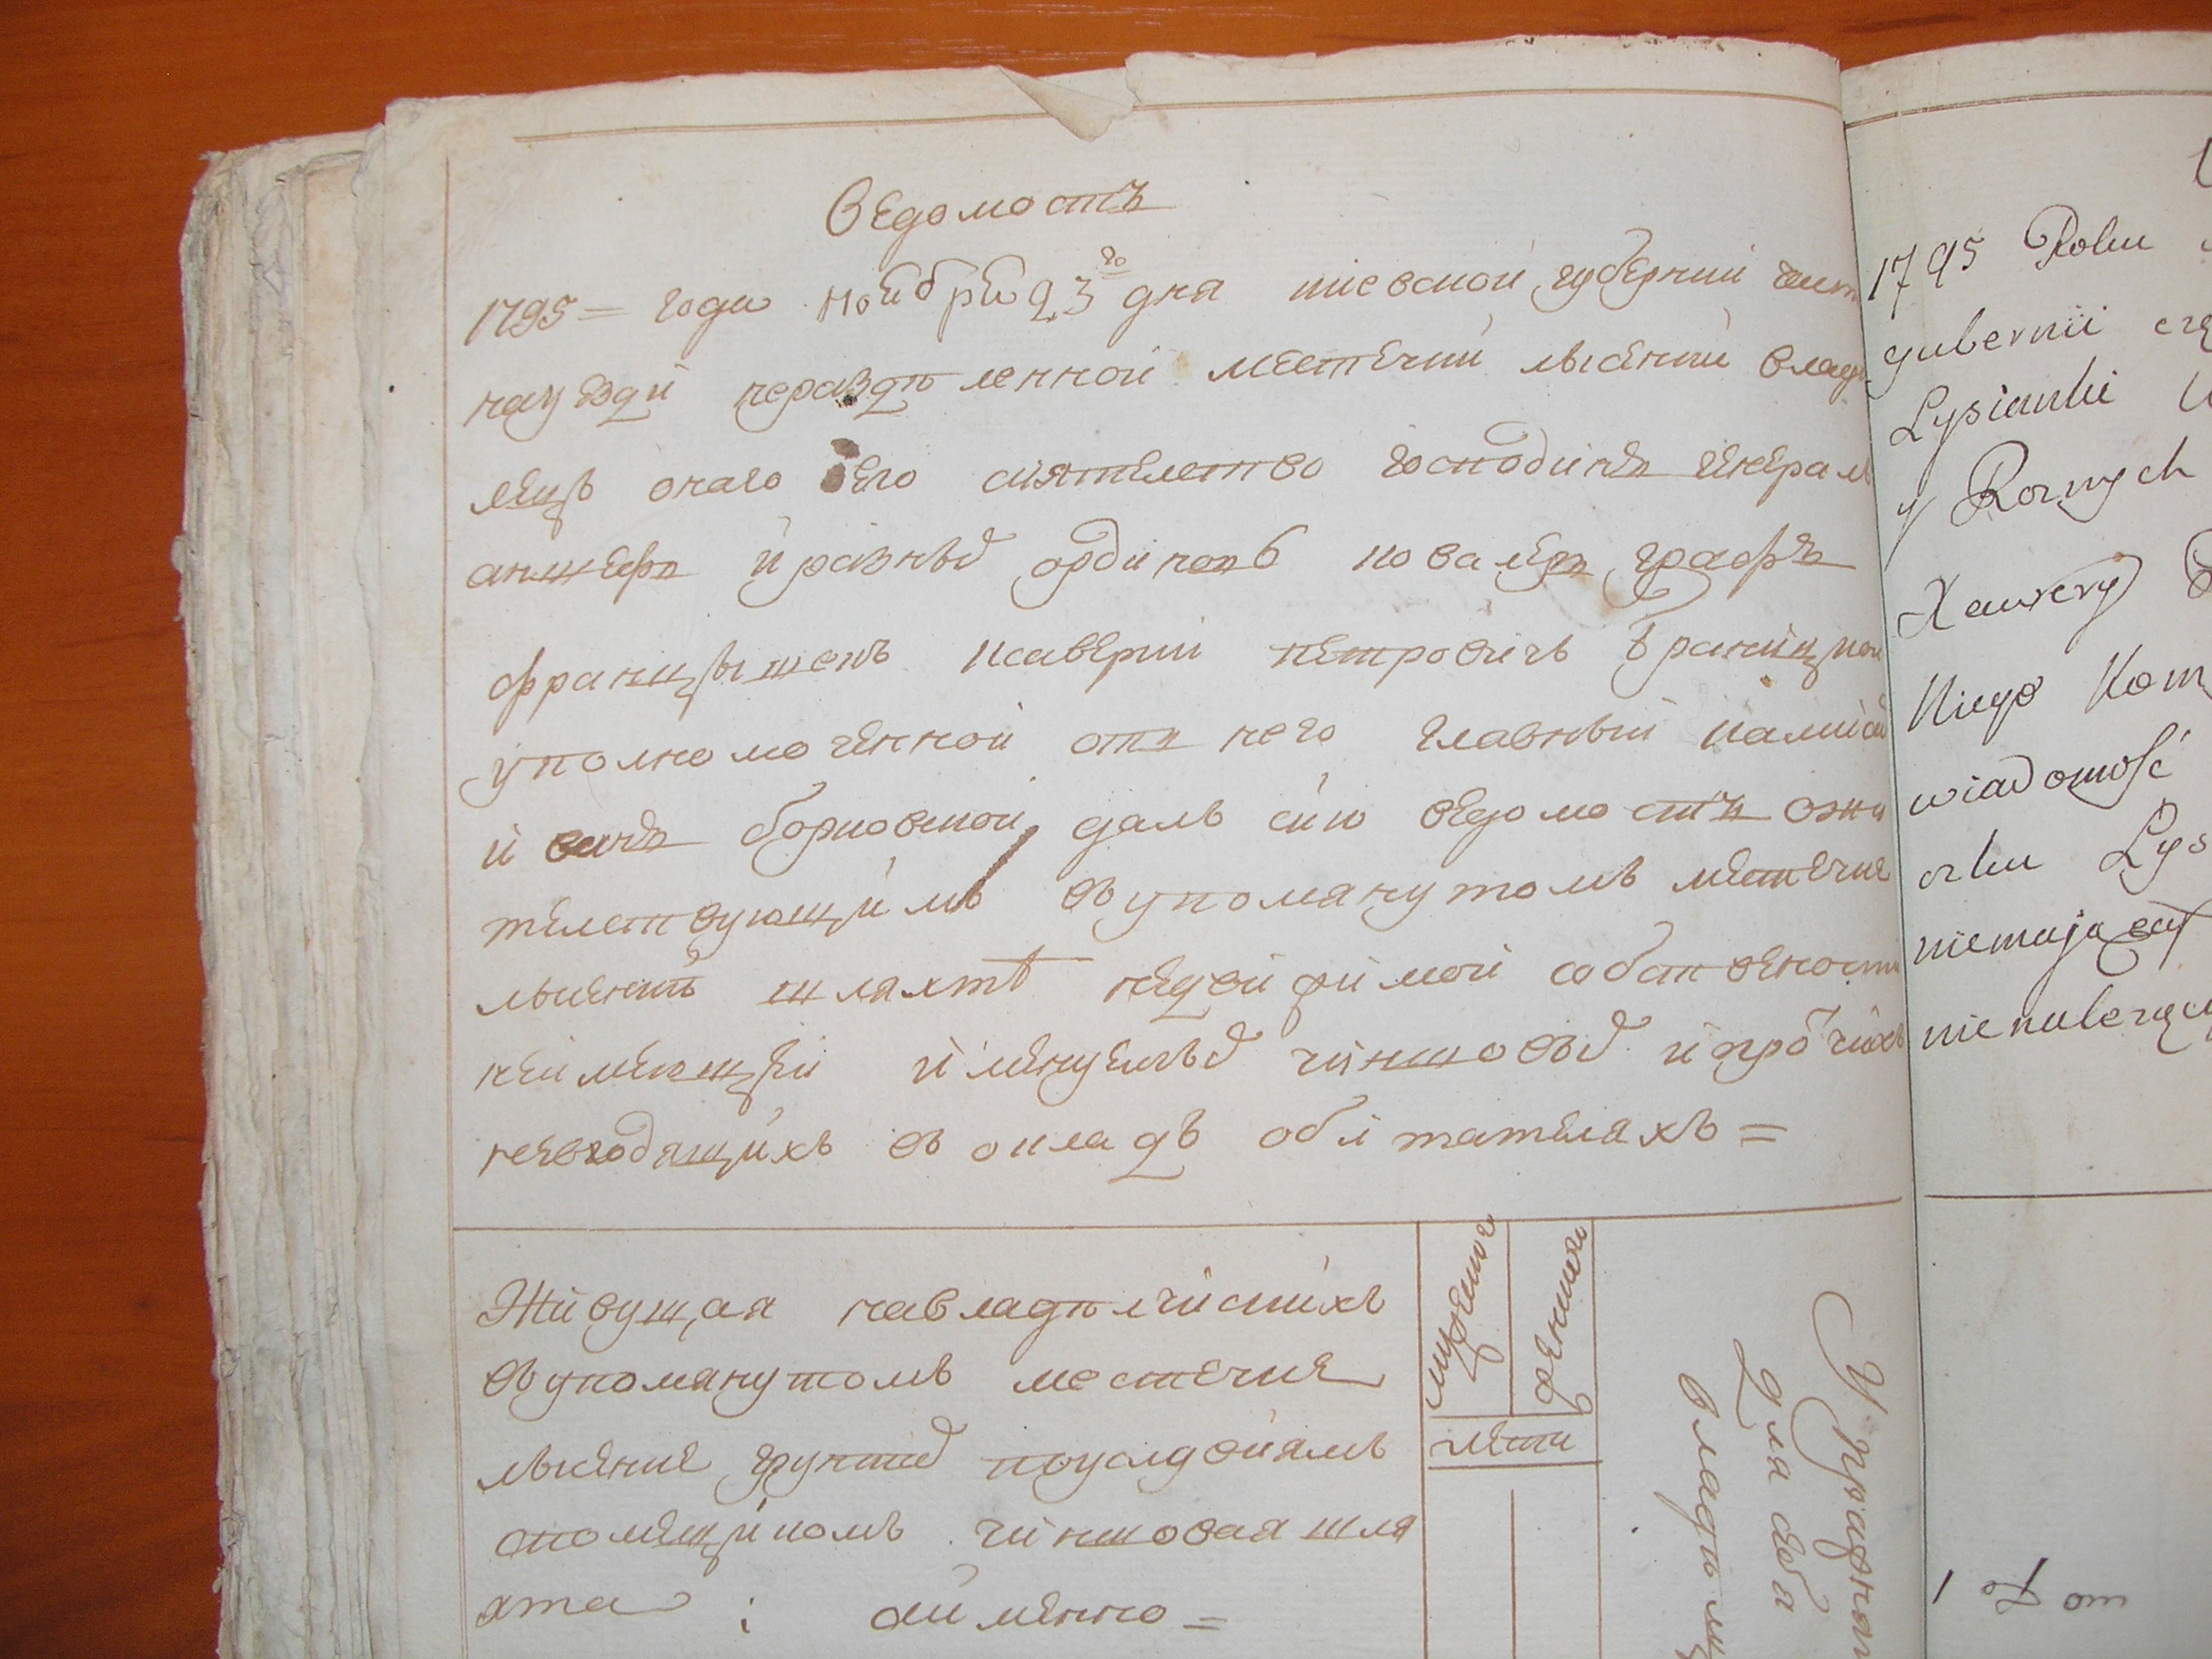 Ведомость
1795 = года ноября 23 го дня киевской губернии
науезди неразделенной местечки лысянки влад
лецъ онаго Его сиятелство господинъ Генералъ
аншефъ и разныхъординовъ ковалеръ графъ
францышекъ ксаверии петровичъ браницкои
уполномоченной отъ него главный камисар
и борковской далъ сию ведомость
телствующимъ въупомянутомъ местечке
лысянкъ шляхтѣ недвижимой собствености
неимеющеи именуемыхъ чиншовыхъ и прочихъ
невходящихъ въ окладъ обитателяхъ =
Живущая навладелческихъ
въупомянутомъ местечке
лысянке грунтахъ поусловиямъ
спомещикомъ чиншовая шля
хта : аименно =
мужеска
женска
лети
для себя
владель
1795 Roku
gubernii
Lysianki
y Roznych
Xawery
Kiego Kom
wiadomość
czku Lys
niemającey
nienalezący
1 Dom